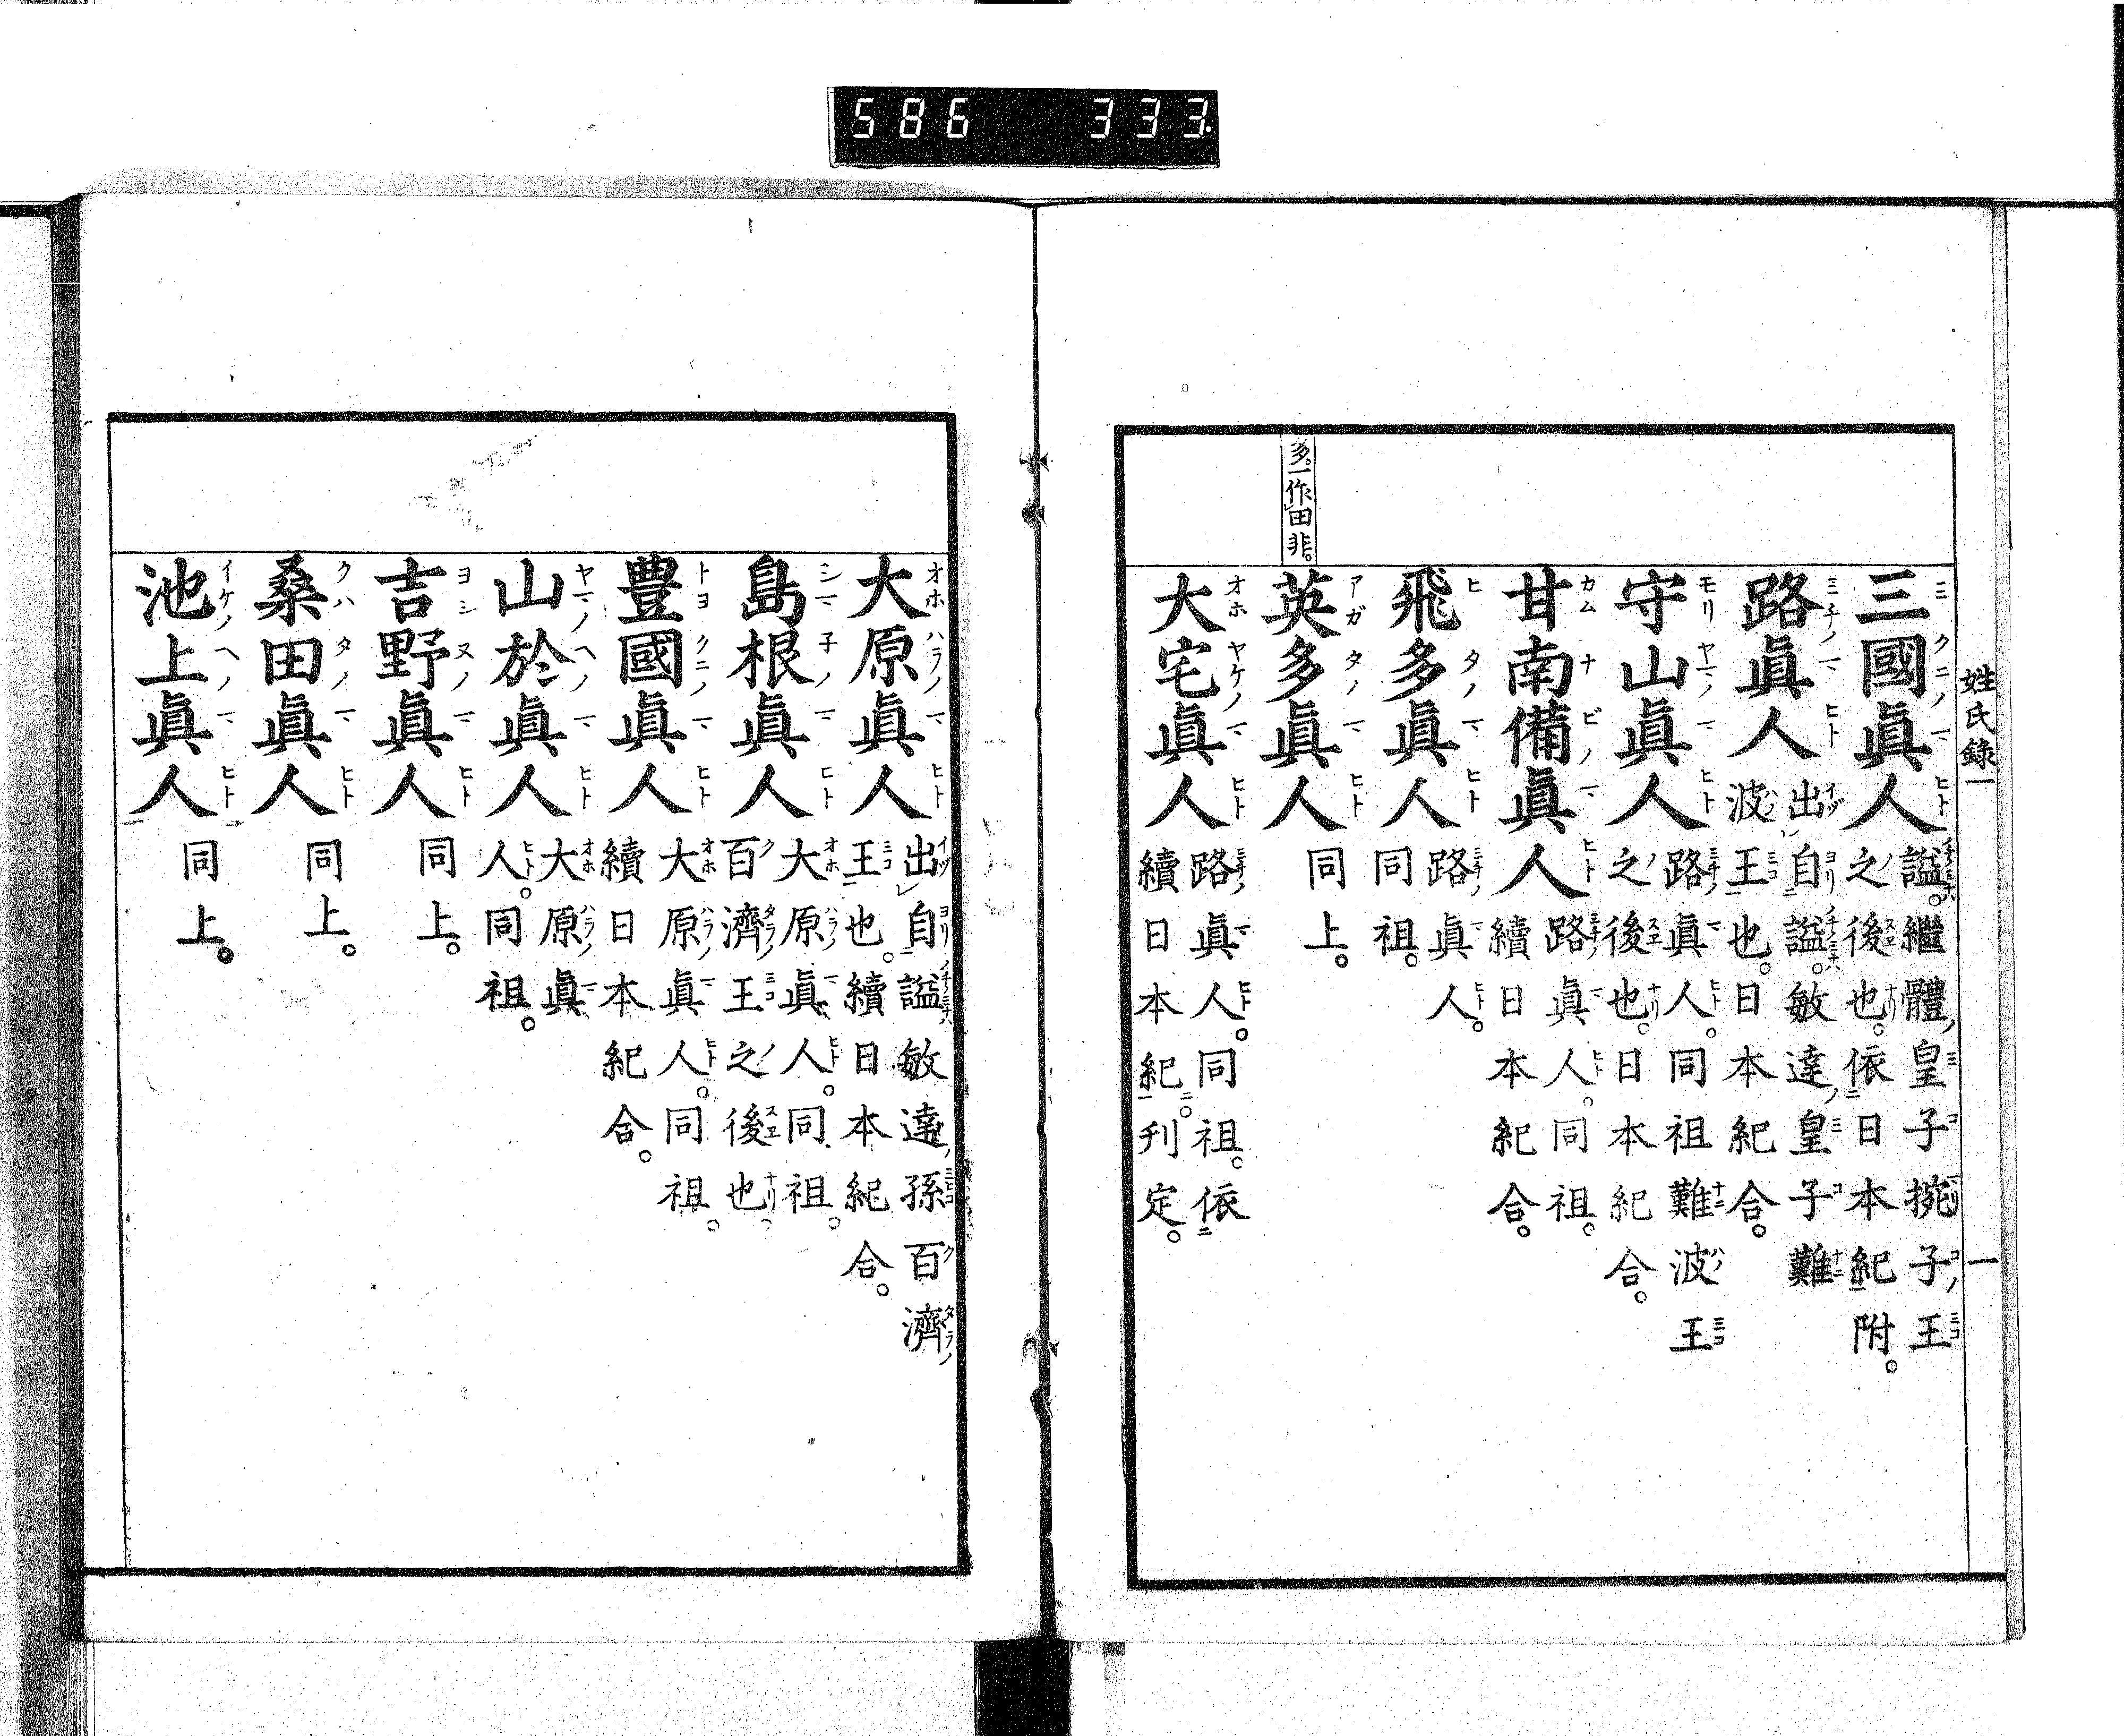 586 333
姓氏錄一
一
三國眞人
謚。繼體皇子椀子王
之後也。依日本紀附。
路眞人
出自謚。敏達皇子難
波王也。日本紀合。
守山眞人
路眞人。同祖難波王
之後也。日本紀合。
甘南備眞人
路眞人。同祖。
續日本紀合。
飛多眞人
路眞人。
同祖。
多。一作田非。
英多眞人
同上。
大宅眞人
路眞人。同祖。依
續日本紀。刋定。
大原眞人
出自謚敏達孫百濟
王也。續日本紀合。
島根眞人
大原眞人。同祖。
百濟王之後也。
豊國眞人
大原眞人。同祖。
續日本紀合。
山於眞人
大原眞
人。同祖。
吉野眞人
同上。
桑田眞人
同上。
池上眞人
同上。